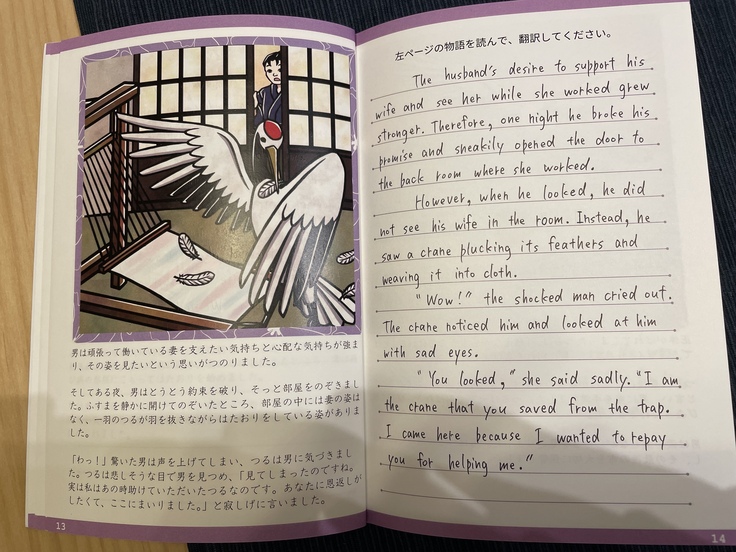 男は頑張って働いている妻を支えたい気持ちと心配な気持ちが強ま
り、その姿を見たいという思いがつのりました。
そしてある夜、男はとうとう約束を破り、そっと部屋をのぞきまし
た。ふすまを静かに開けてのぞいたところ、部屋の中には妻の姿は
なく、一羽のつるが羽を抜きながらはたおりをしている姿がありま
した。
「わっ！」驚いた男は声を上げてしまい、つるは男に気づきまし
た。つるは悲しそうな目で男を見つめ、「見てしまったのですね。
実は私はあの時助けていただいたつるなのです。あなたに恩返しが
したくて、ここにまいりました。」と寂しげに言いました。
13
左ページの物語を読んで、翻訳してください。
The husband's desire to support his
wife and see her while she worked grew
stronger. Therefore, one night he broke his
promise and sneakily opened the door to
the back room where she worked.
However, when he looked, he did
not see his wife in the room. Instead, he
saw a crane plucking its feathers and
weaving it into cloth.
"Wow!" the shocked man cried out.
The crane noticed him and looked at him
with sad eyes.
"You looked," she said sadly. "I am
the crane that you saved from the trap.
I came here because I wanted to repay
you for helping me."
14